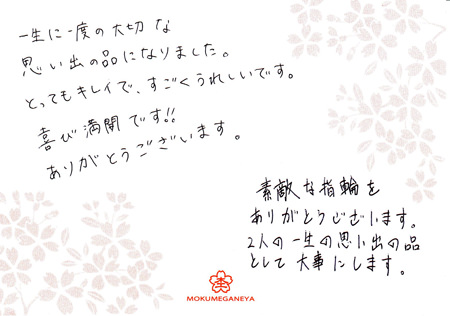 一生に一度の大切な
思い出の品になりました。
とってもキレイで、すごくうれしいです。
喜び満開です!!
ありがとうございます。
素敵な指輪を
ありがとうございます。
2人の一生の思い出の品
として大事にします。
MOKUMEGANEYA